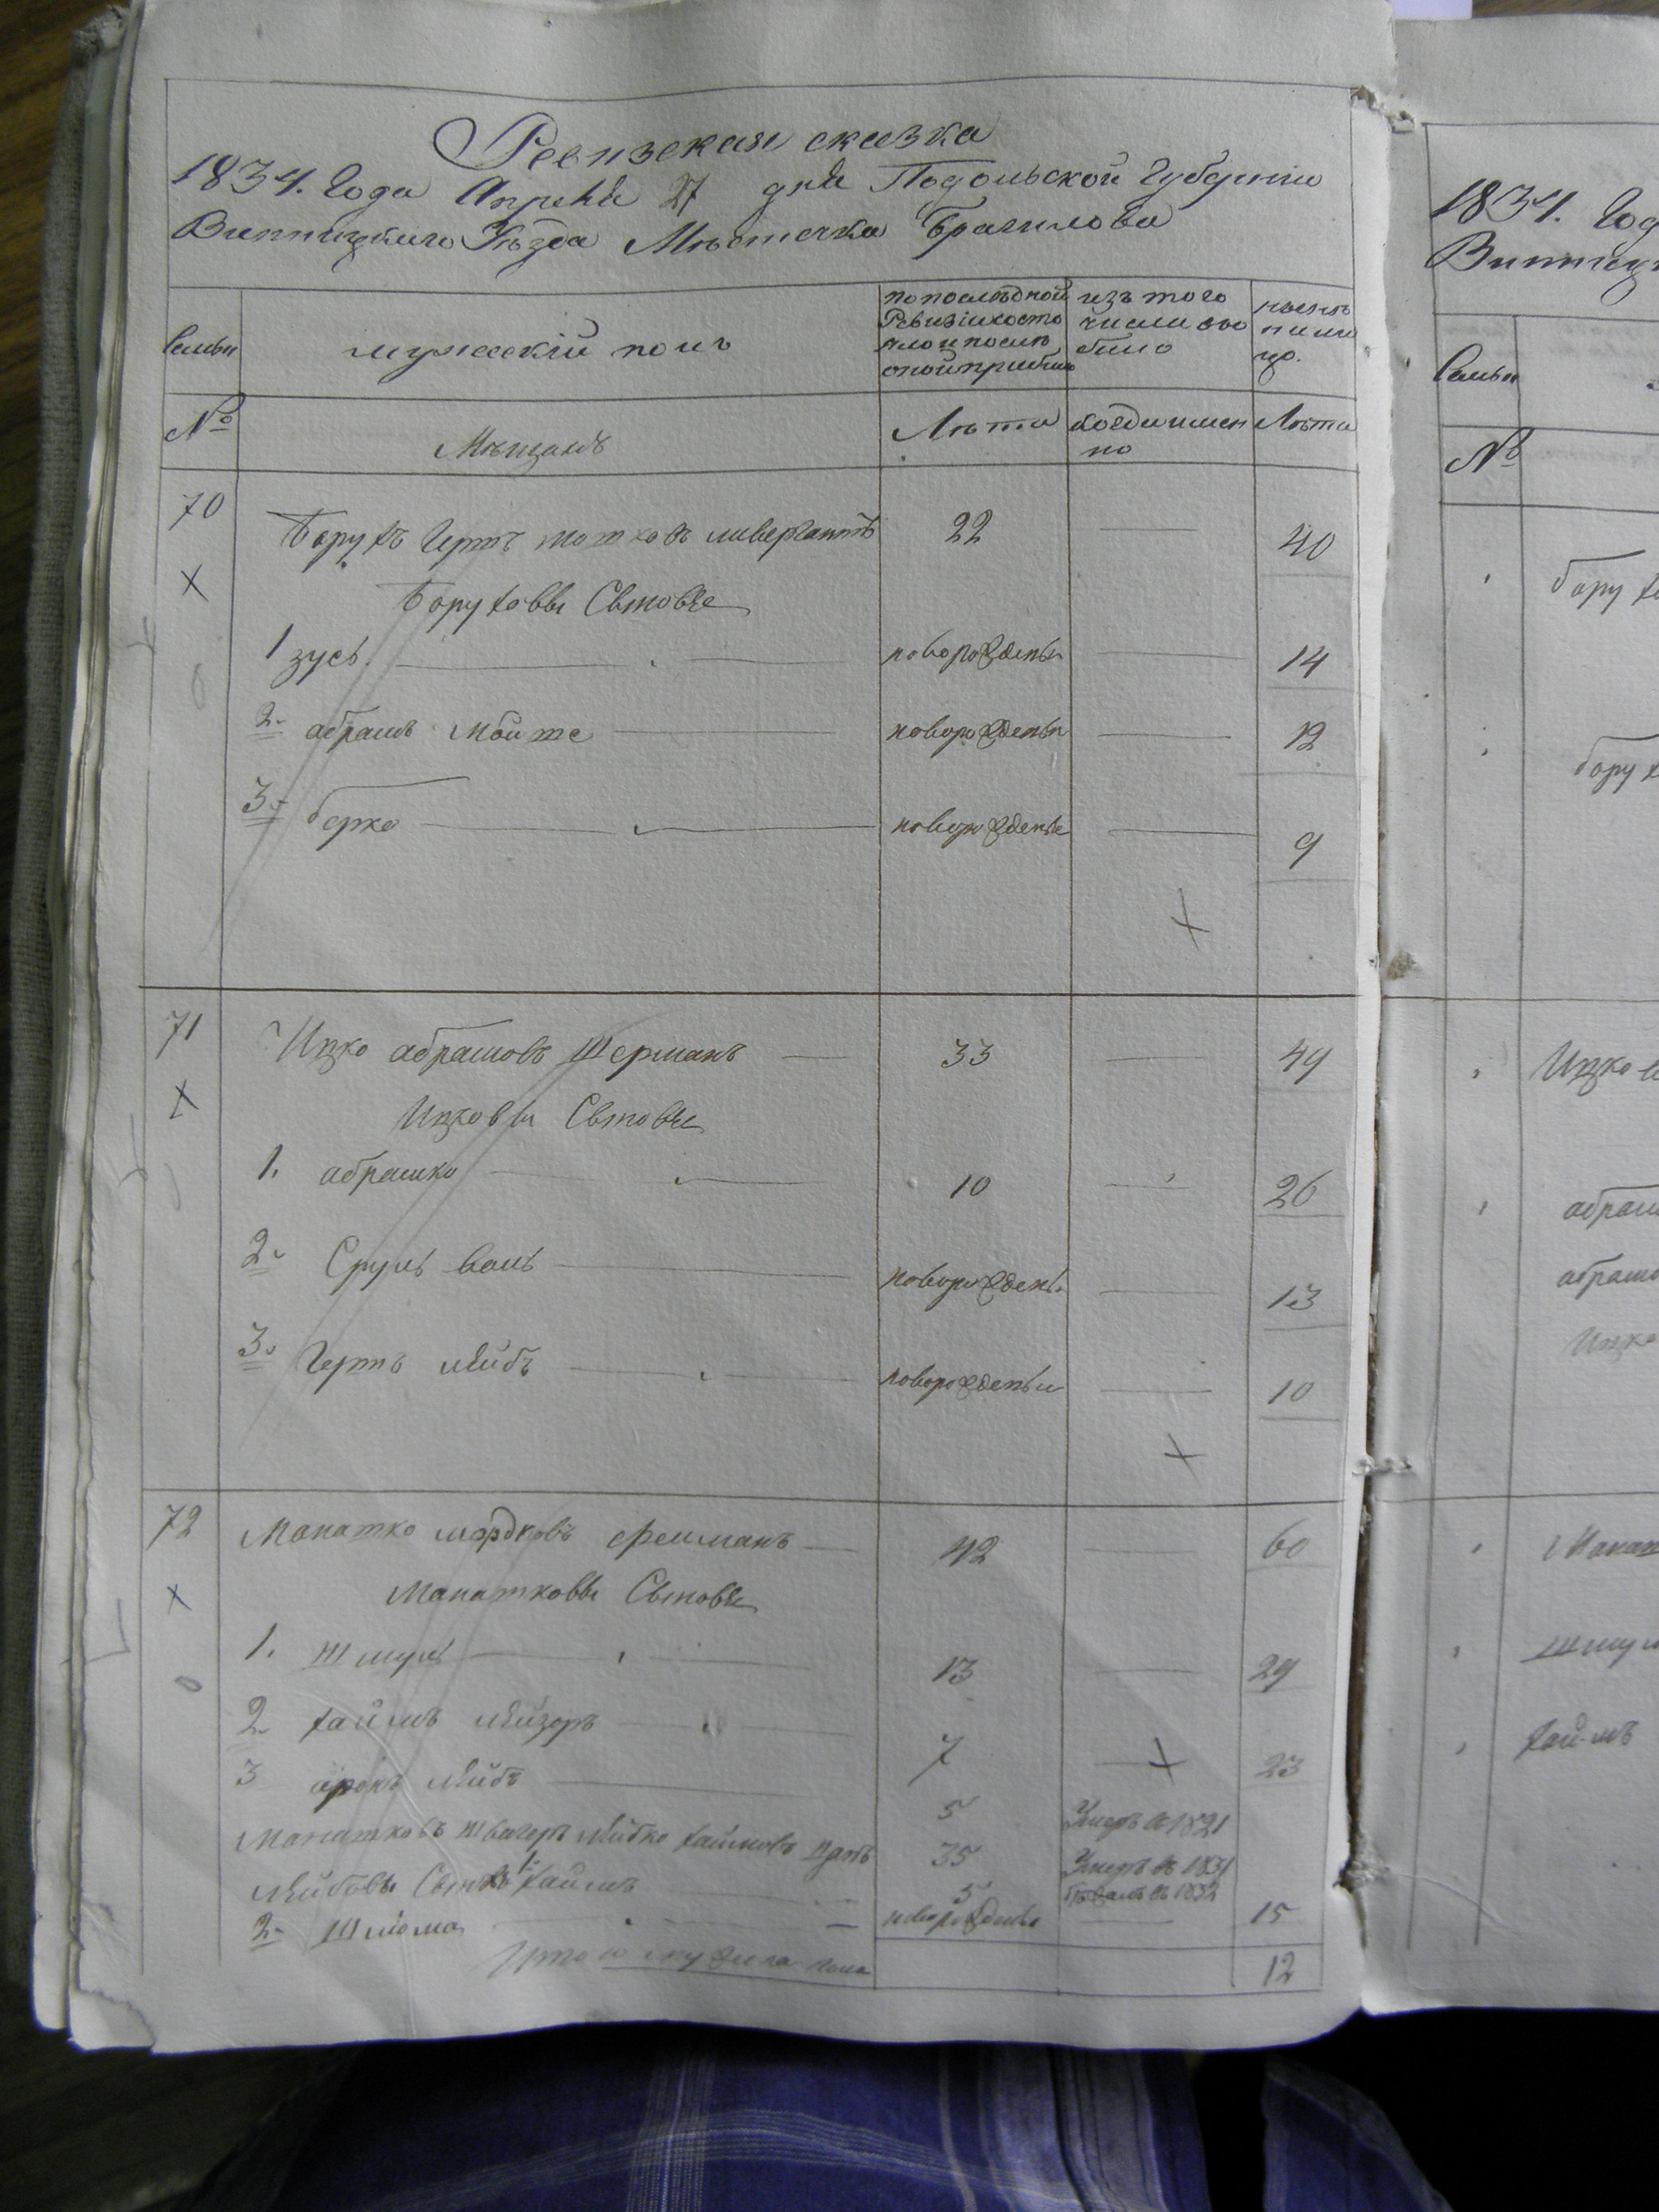 Ревизская сказка
1834. Года Апреля 27 дня Подольской Губерніи
Винницкаго Уѣзда Мѣстечка Браилова
Семьи
мужескій полъ
по послѣдной Ревизіи состояло и послѣ оной прибыло
изъ того числа выбыло
нынѣ на лицо.
№
Мѣщанъ
Лѣта
когда именно
Лѣта
70
Борухъ Герть Мошковъ 22 40
Боруховы Сыновье
1 зусь новорожденъ 14
2 абрамъ новорожденъ 12
3 берко новорожденъ 9
71
Ицко абрамовъ Шерманъ 33 49
Ицковы Сыновье
1. абрамко 10 26
2 Сруль новорожденъ 13
3 Герть лейбъ новорожденъ 10
72
Манашко мордковъ 42 60
Манашковы Сыновье
1. Шмуль 13 29
2 хаимъ лейзоръ 7 23
3 аронъ лейбъ 5 Умеръ въ 1821
Манашковъ швагеръ лейбко хаимовъ 35 Умеръ въ 1831
лейбовы Сыновья 1 хаимъ 5 въ 1832
2 Шлiома новорожденъ 15
Итого мужеска пола 12
1834. Год
Винниц
Семьи
№
бору
бору
Ицко
абрам
абрам
Ицко
Манаш
Шму
хаимъ